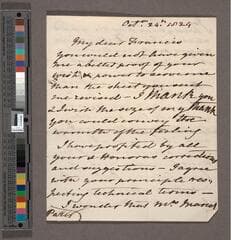 Oct. 24th 1824
My dear Francis
You could not have given
me a better proof of your
wish & power to
than the sheet you
me – I thank you
& I wish the of my thanks
you could convey the
warmth of the feeling
I have profited by all
your & Honoras corrections
and suggestions – I agree
with your principle res-
pecting technical terms –
I wonder that Mrs Marcet